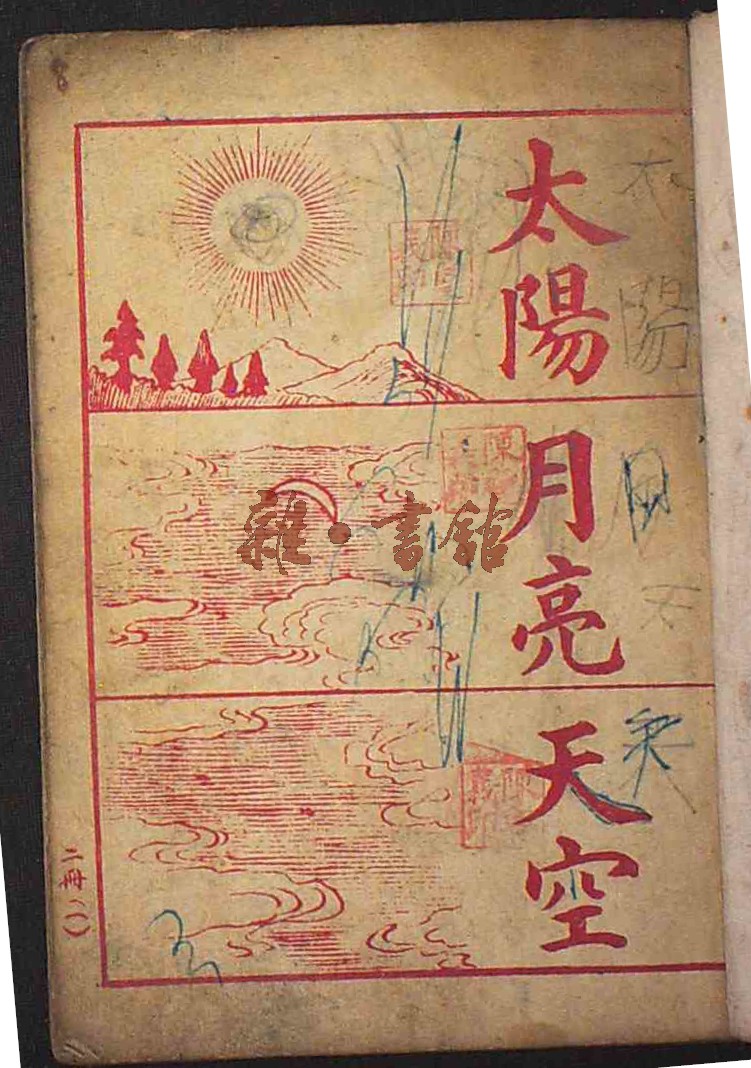 太陽
月亮
天空
雜·書館
二冊(一)
太
陽
月
天